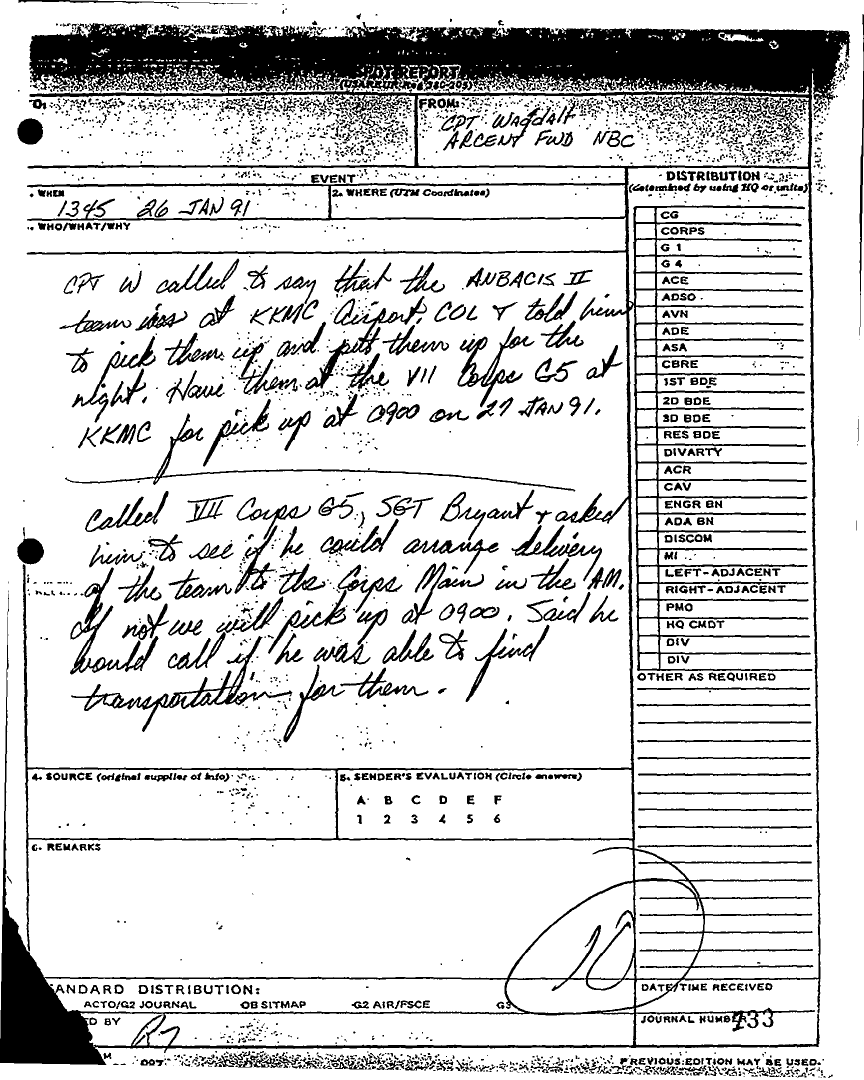 SPOT REPORT
(USAREUR Reg 380-305)
O:
FROM:
CPT Wagdalt
ARCENT FWD NBC
EVENT
. WHEN
1345 26 JAN 91
2. WHERE (UTM Coordinates)
. WHO/WHAT/WHY
CPT W called to say that the ANBACIS II
team was at KKMC Airport. COL T told him
to pick them up and put them up for the
night. Have them at the VII Corps G5 at
KKMC for pick up at 0900 on 27 JAN 91.
Called VII Corps G5, SGT Bryant & asked
him to see if he could arrange delivery
of the team to the Corps Main in the AM.
If not we will pick up at 0900. Said he
would call if he was able to find
transportation for them.
DISTRIBUTION
(determined by using HQ or units)
CG
CORPS
G 1
G 4
ACE
ADSO
AVN
ADE
ASA
CBRE
1ST BDE
2D BDE
3D BDE
RES BDE
DIVARTY
ACR
CAV
ENGR BN
ADA BN
DISCOM
MI
LEFT-ADJACENT
RIGHT-ADJACENT
PMO
HQ CMDT
DIV
DIV
OTHER AS REQUIRED
4. SOURCE (original supplier of info)
5. SENDER'S EVALUATION (Circle answers)
A B C D E F
1 2 3 4 5 6
6. REMARKS
10
ANDARD DISTRIBUTION:
ACTO/G2 JOURNAL OB SITMAP G2 AIR/FSCE G3
ED BY
DATE/TIME RECEIVED
JOURNAL NUMBER 133
M
PREVIOUS EDITION MAY BE USED.